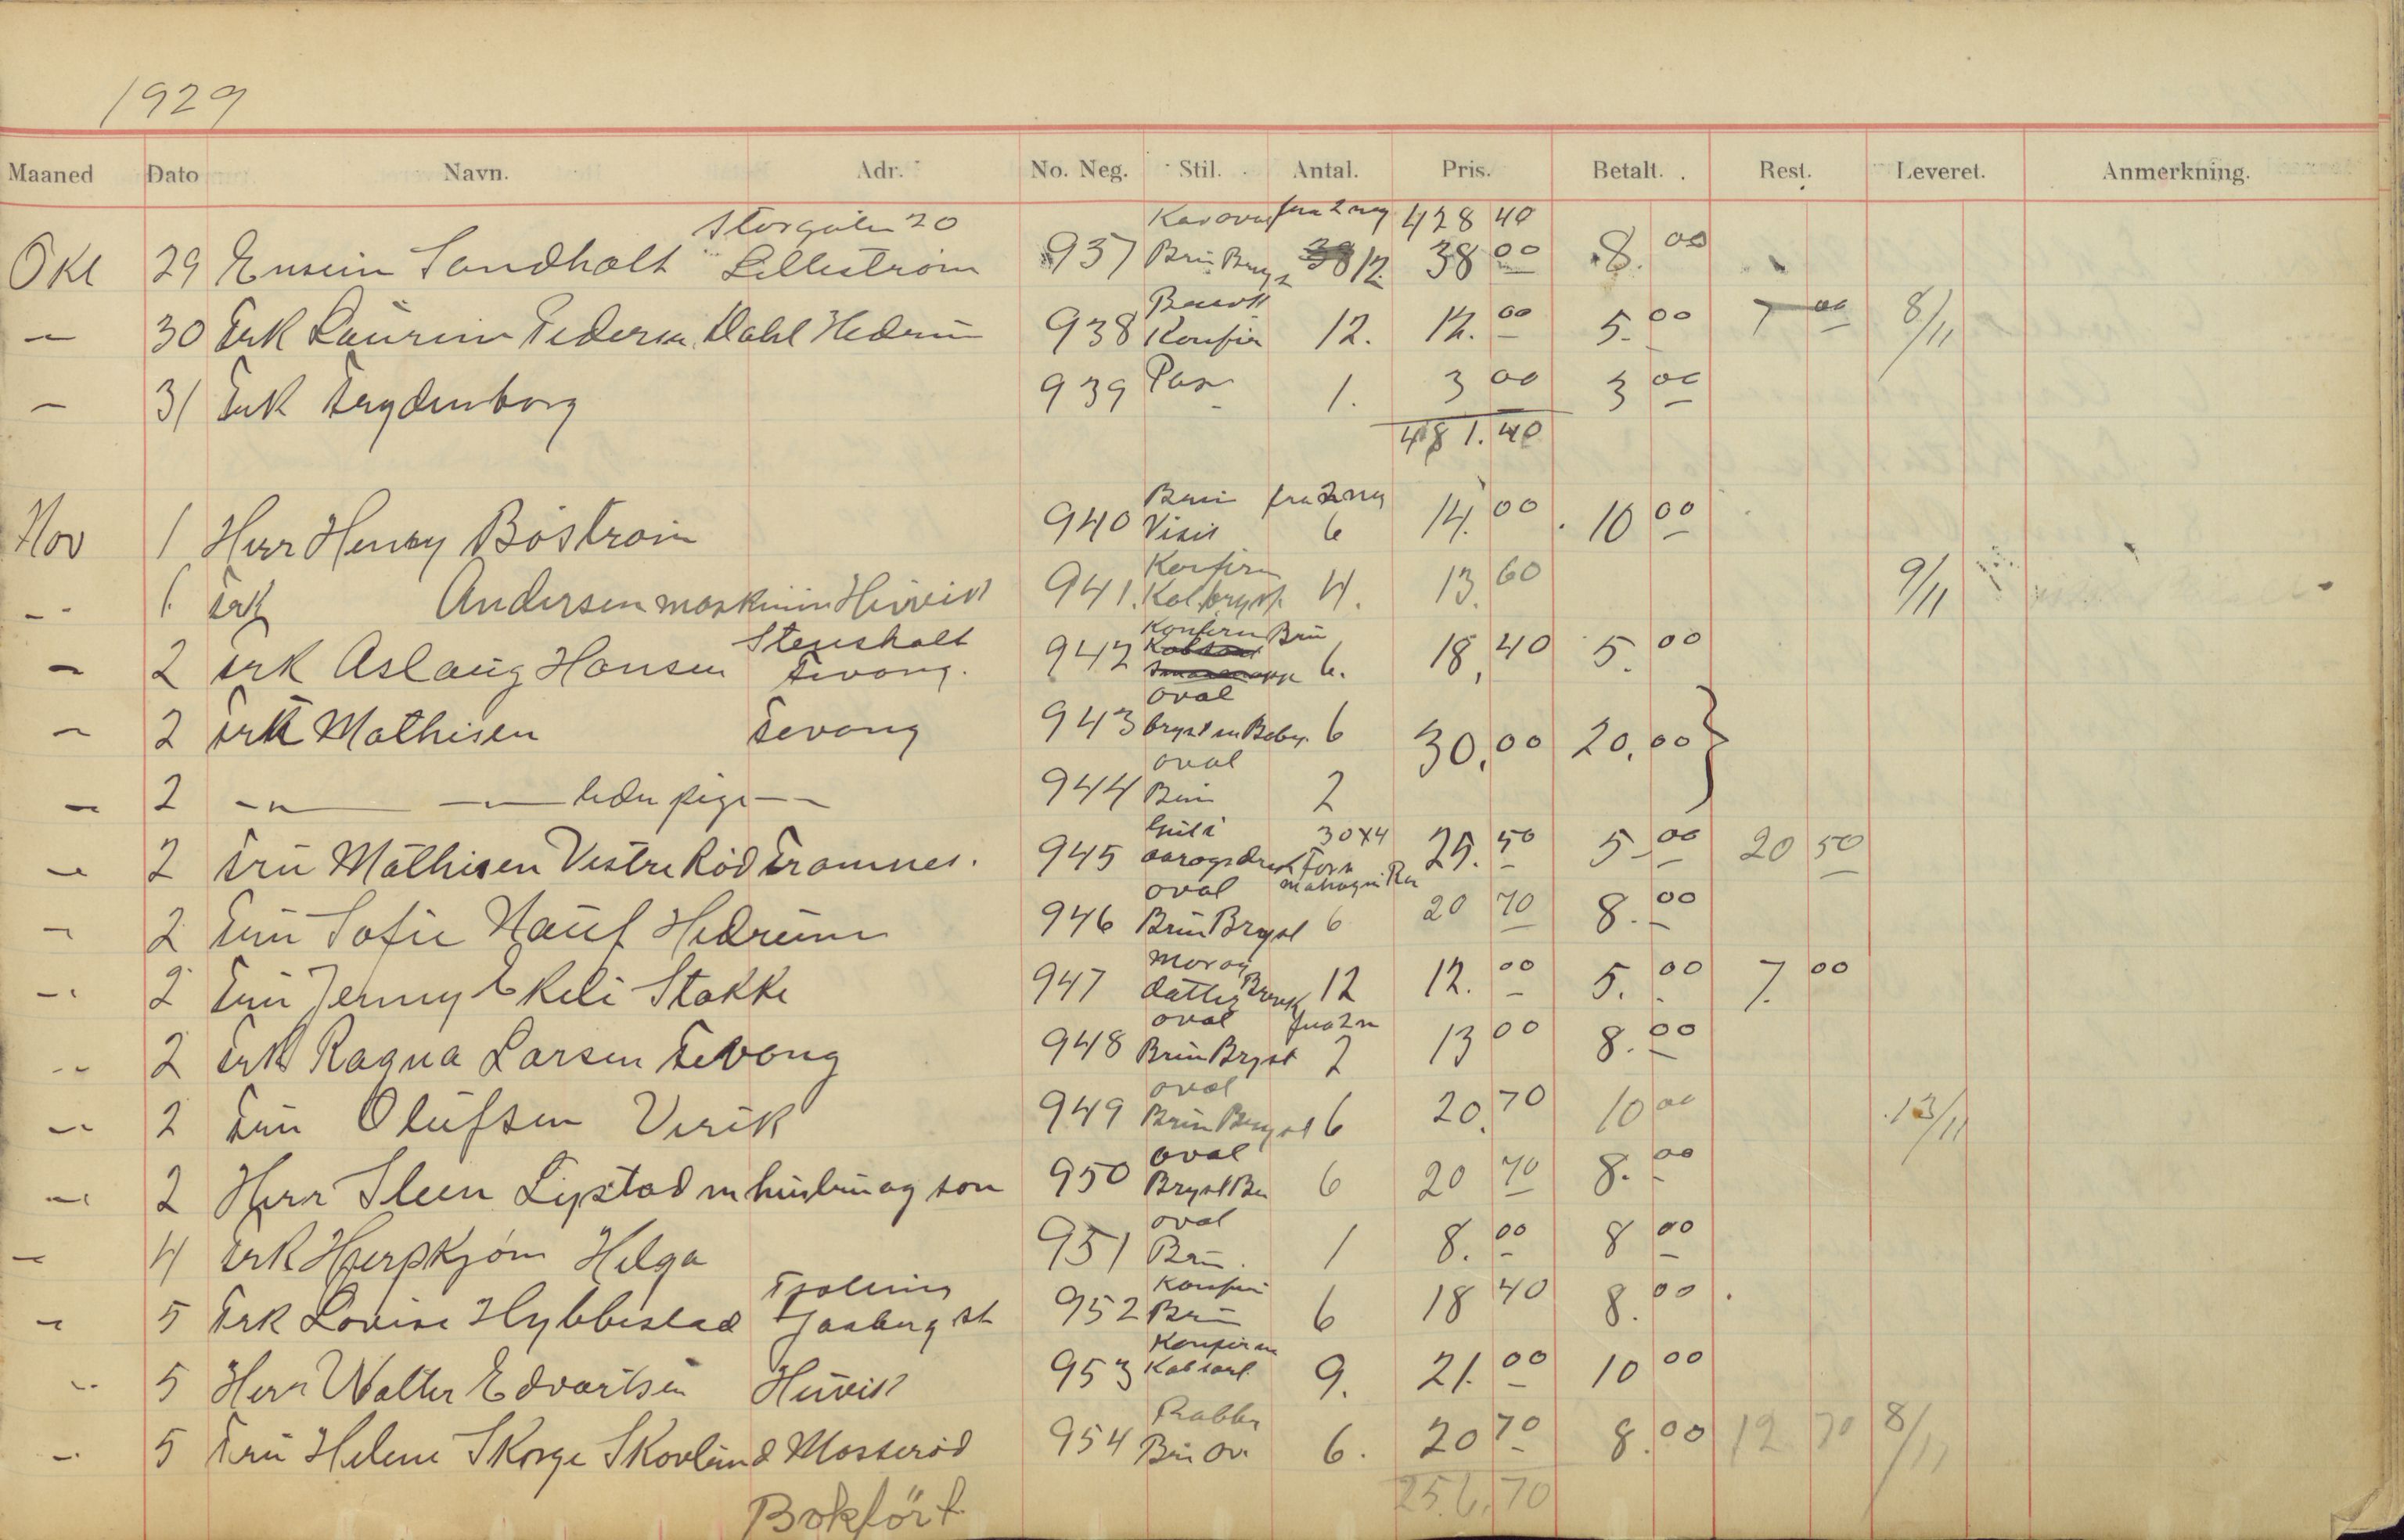 1929
Maaned Dato Navn. Adr. No. Neg. Stil. Antal. Pris. Betalt. Rest. Leveret. Anmerkning.
Storgaten 20 fra 2 neg 428 40
Okt 29 Sandholt Lilleström 937 Brun Bryst 12 38 00 8. 00
— 30 Frk Laurine Pedersen Dahl Hedrum 938 Konfir 12. 12. 00 5. 00 7 00 8/11
— 31 Frk Frydenborg 939 Pas 1. 3 00 3 00
481. 40
Brun fra 2 neg
Nov 1 Herr Henry Boström 940 Visit 6 14. 00 10 00
Konfirm
1. Frk Andersen 941. Kolbryst 4. 13. 60 9/11
Stensholt Konfirm Brun
— 2 Frk Aslaug Hansen Fevang. 942 6. 18, 40 5. 00
oval
— 2 Frk Mathisen Fevang 943 bryst 6 30, 00 20, 00 }
oval
— 2 —„— —„— liden pige — 944 Brun 2
30x4
— 2 Fru Mathisen Vestre Rød Framnes. 945 25. 50 5 00 20 50
oval
— 2 Fru Sofie Nauf Hedrum 946 Brun Bryst 6 20 70 8. 00
mor og
— 2 Fru Jenny Ekeli Stokke 947 datter 12 12. 00 5. 00 7. 00
oval fra 2 n
— 2 Frk Ragna Larsen Fevang 948 Brun Bryst 2 13 00 8. 00
oval
— 2 Fru Olufsen Virik 949 Brun Bryst 6 20. 70 10 00 13/11
oval
— 2 Herr Steen Lystad m hustru og søn 950 Bryst Brun 6 20 70 8. 00
oval
— 4 Frk Hjerpkjøn Helga 951 Brun. 1 8. 00 8 00
Tjølling Konfir
— 5 Frk Lovise Hybbestad st 952 Brun 6 18 40 8. 00
Konfirm
5 Herr Walter Edvartsen Huvik 953 Kabsort 9. 21. 00 10 00
— 5 Fru Helene Skorge Skovlund Mosserød 954 Brun Ov 6. 20 70 8. 00 12 70 8/11
Bokfört 256. 70